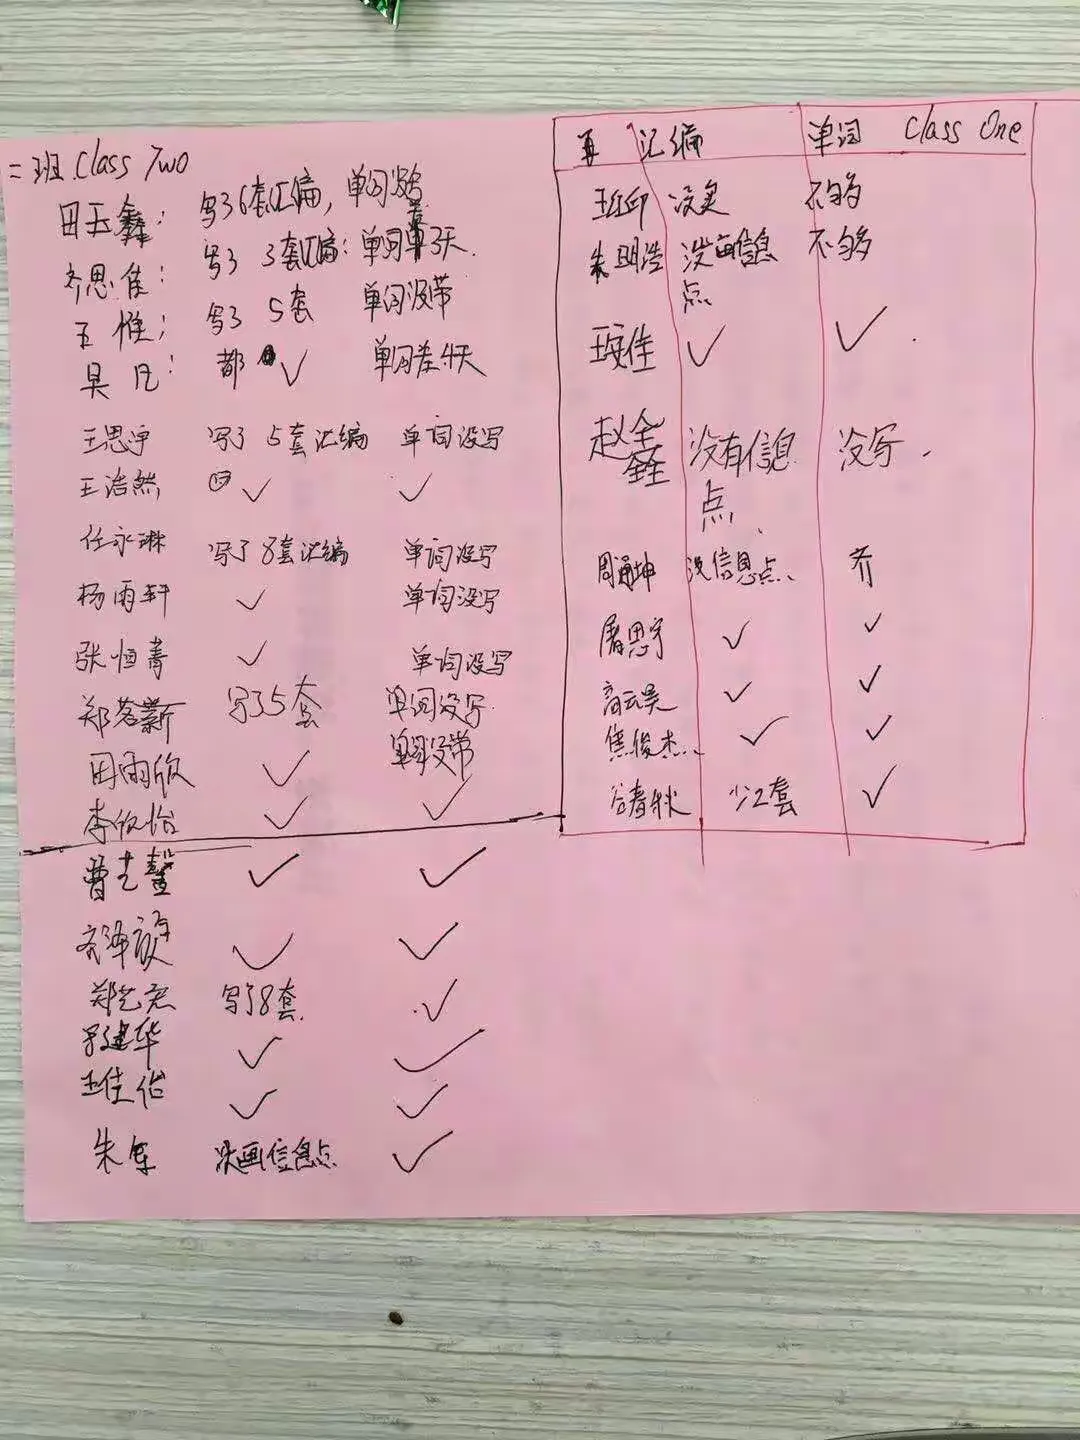 二班 Class Two
田玉鑫: 写了6套汇编, 单词没写
齐思佳: 写了3套汇编: 单词 3天
王惟: 写了5套 单词没带
吴凡: 都 ✓ 单词差4天
王思宇 写了5套汇编 单词没写
王浩然 ✓ ✓
任永琳 写了8套汇编 单词没写
杨雨轩 ✓ 单词没写
张恒菁 ✓ 单词没写
郑茗蕲 写了5套 单词没写
田雨欣 ✓ 单词没带
李欣怡 ✓ ✓
曹艺馨 ✓ ✓
齐泽 ✓ ✓
郑艺 写了8套 ✓
建华 ✓ ✓
王佳怡 ✓ ✓
朱军 没画信息点 ✓
汇编 单词 Class One
没 不够
朱明浩 没画信息点 不够
佳 ✓ ✓
赵全鑫 没有信息点 没写
周通坤 没信息点 齐
屠思宇 ✓ ✓
高云昊 ✓ ✓
焦俊杰 ✓ ✓
谷春秋 少2套 ✓